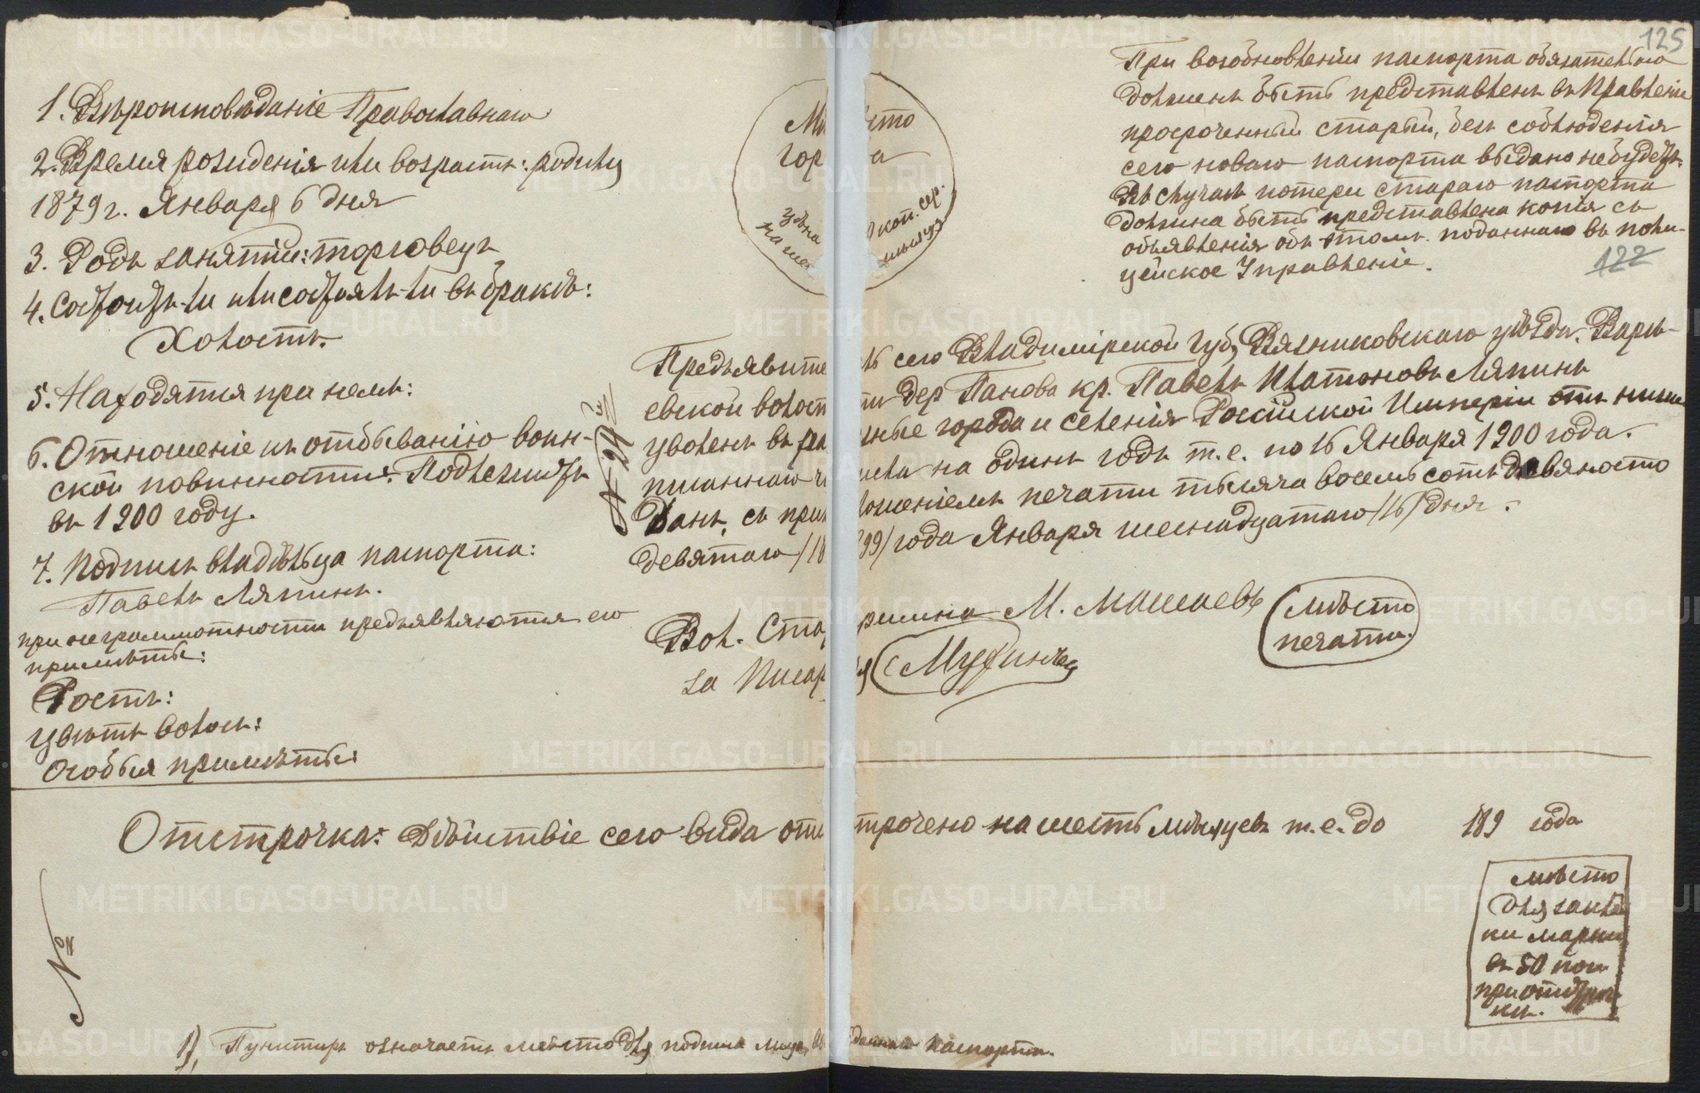 125
1. Вѣроисповѣданіе Православнаго
2. Время рожденія или возрастъ: родился
1879 г. Января 6 дня
3. Родъ занятій: торговецъ
4. Состоитъ-ли или состоялъ-ли въ бракѣ:
Холостъ.
5. Находятся при немъ:
6. Отношеніе къ отбыванію воин-
ской повинности: Подлежитъ
въ 1900 году.
7. Подпись владѣльца паспорта:
Павелъ Ляпинъ.
при неграммотности предъявляются его
примѣты:
Ростъ:
цвѣтъ волосъ:
Особыя примѣты:
Мѣсто
гор а
Цѣна коп. сер.
При возобновленіи паспорта обязательно
долженъ быть представленъ въ Правленіе
просроченный старый, безъ соблюденія
сего новаго паспорта выдано не будетъ.
Въ случаѣ потери стараго паспорта
должна быть представлена копія съ
объявленія объ этомъ поданнаго въ поли-
цейское Управленіе.
122
Предъявитель сего Владимірской губ, Вязниковскаго уѣзда. Варѣ-
евской волости дер Панова кр. Павелъ Платоновъ Ляпинъ
уволенъ въ разные города и селенія Россійской Имперіи отъ ниже
писаннаго числа на одинъ годъ т.е. по 16 Января 1900 года.
Данъ, съ приложеніемъ печати тысяча восемьсотъ девяносто
девятаго /1899/ года Января шестнадцатаго /16/ дня.
Вол. Старшина М. Машаевъ
за Писаря
мѣсто
печати.
Отстрочка: Дѣйствіе сего вида отстрочено на шесть мѣсяцевъ т.е. до 189 года
№
мѣсто
для наклей
ки марки
въ 50 коп
при отстроч-
кѣ.
1), Пунктиръ означаетъ мѣсто для подписи паспорта.
METRIKI.GASO-URAL.RU